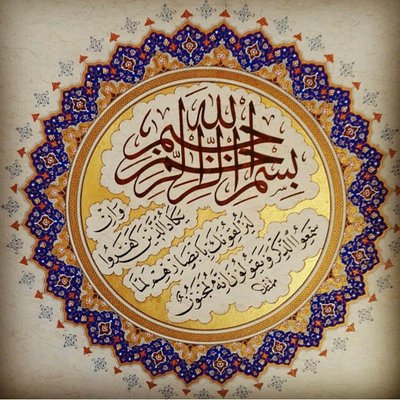 بسم الله الرحمن الرحيم
وان
يكاد الذين كفروا
ليزلقونك بابصارهم لما
سمعوا الذكر و يقولون انه لمجنون